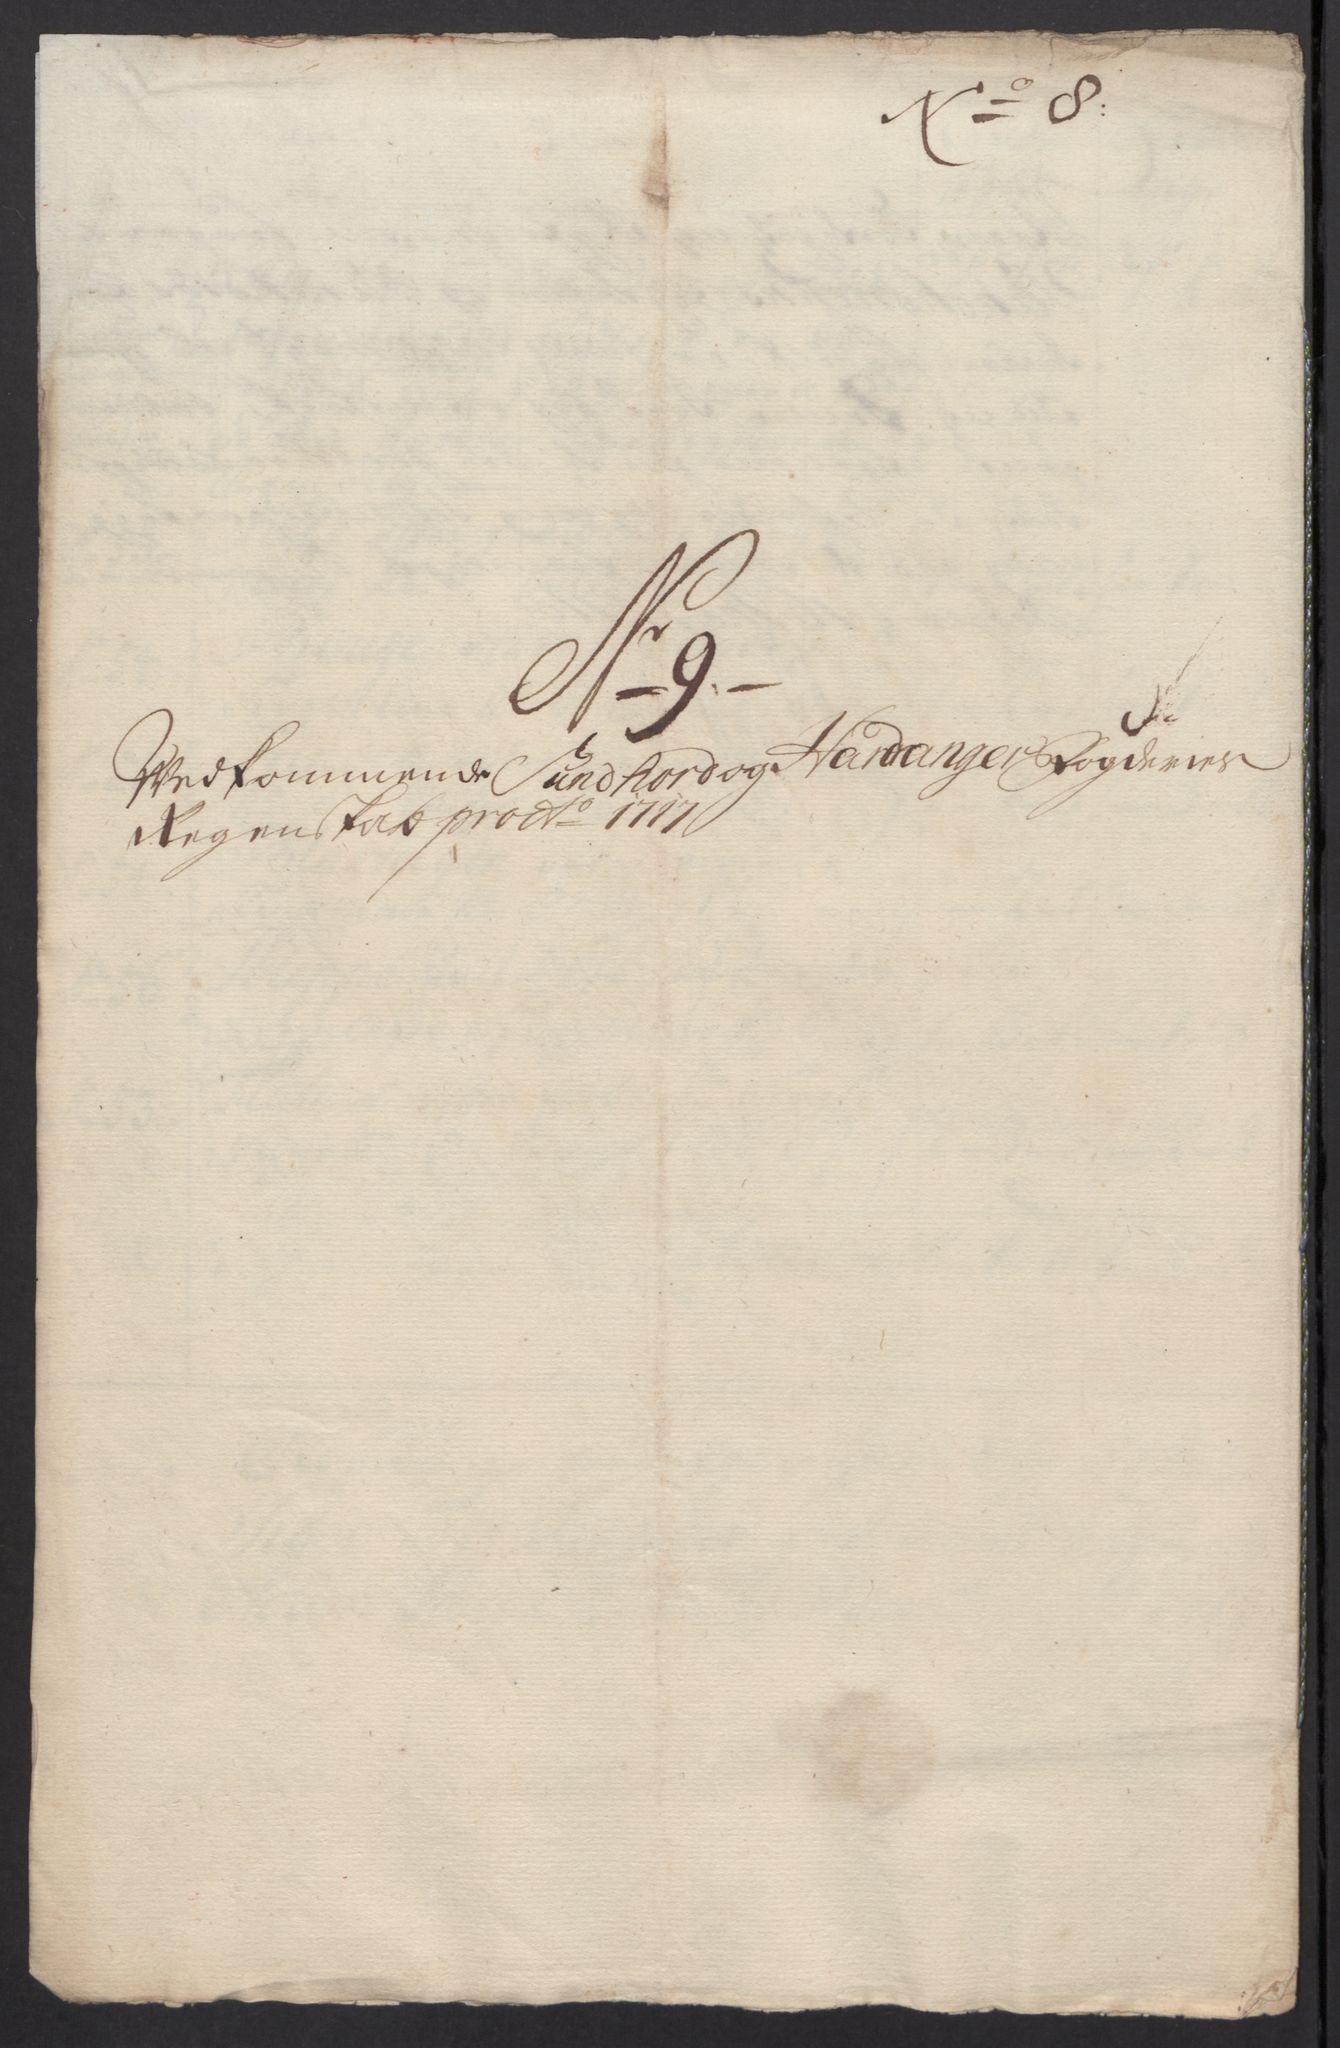 No 8:
Nr 9.
Vedkommende Sundhord og Hardanger Fogderies
Regenskab pro Ao 1717